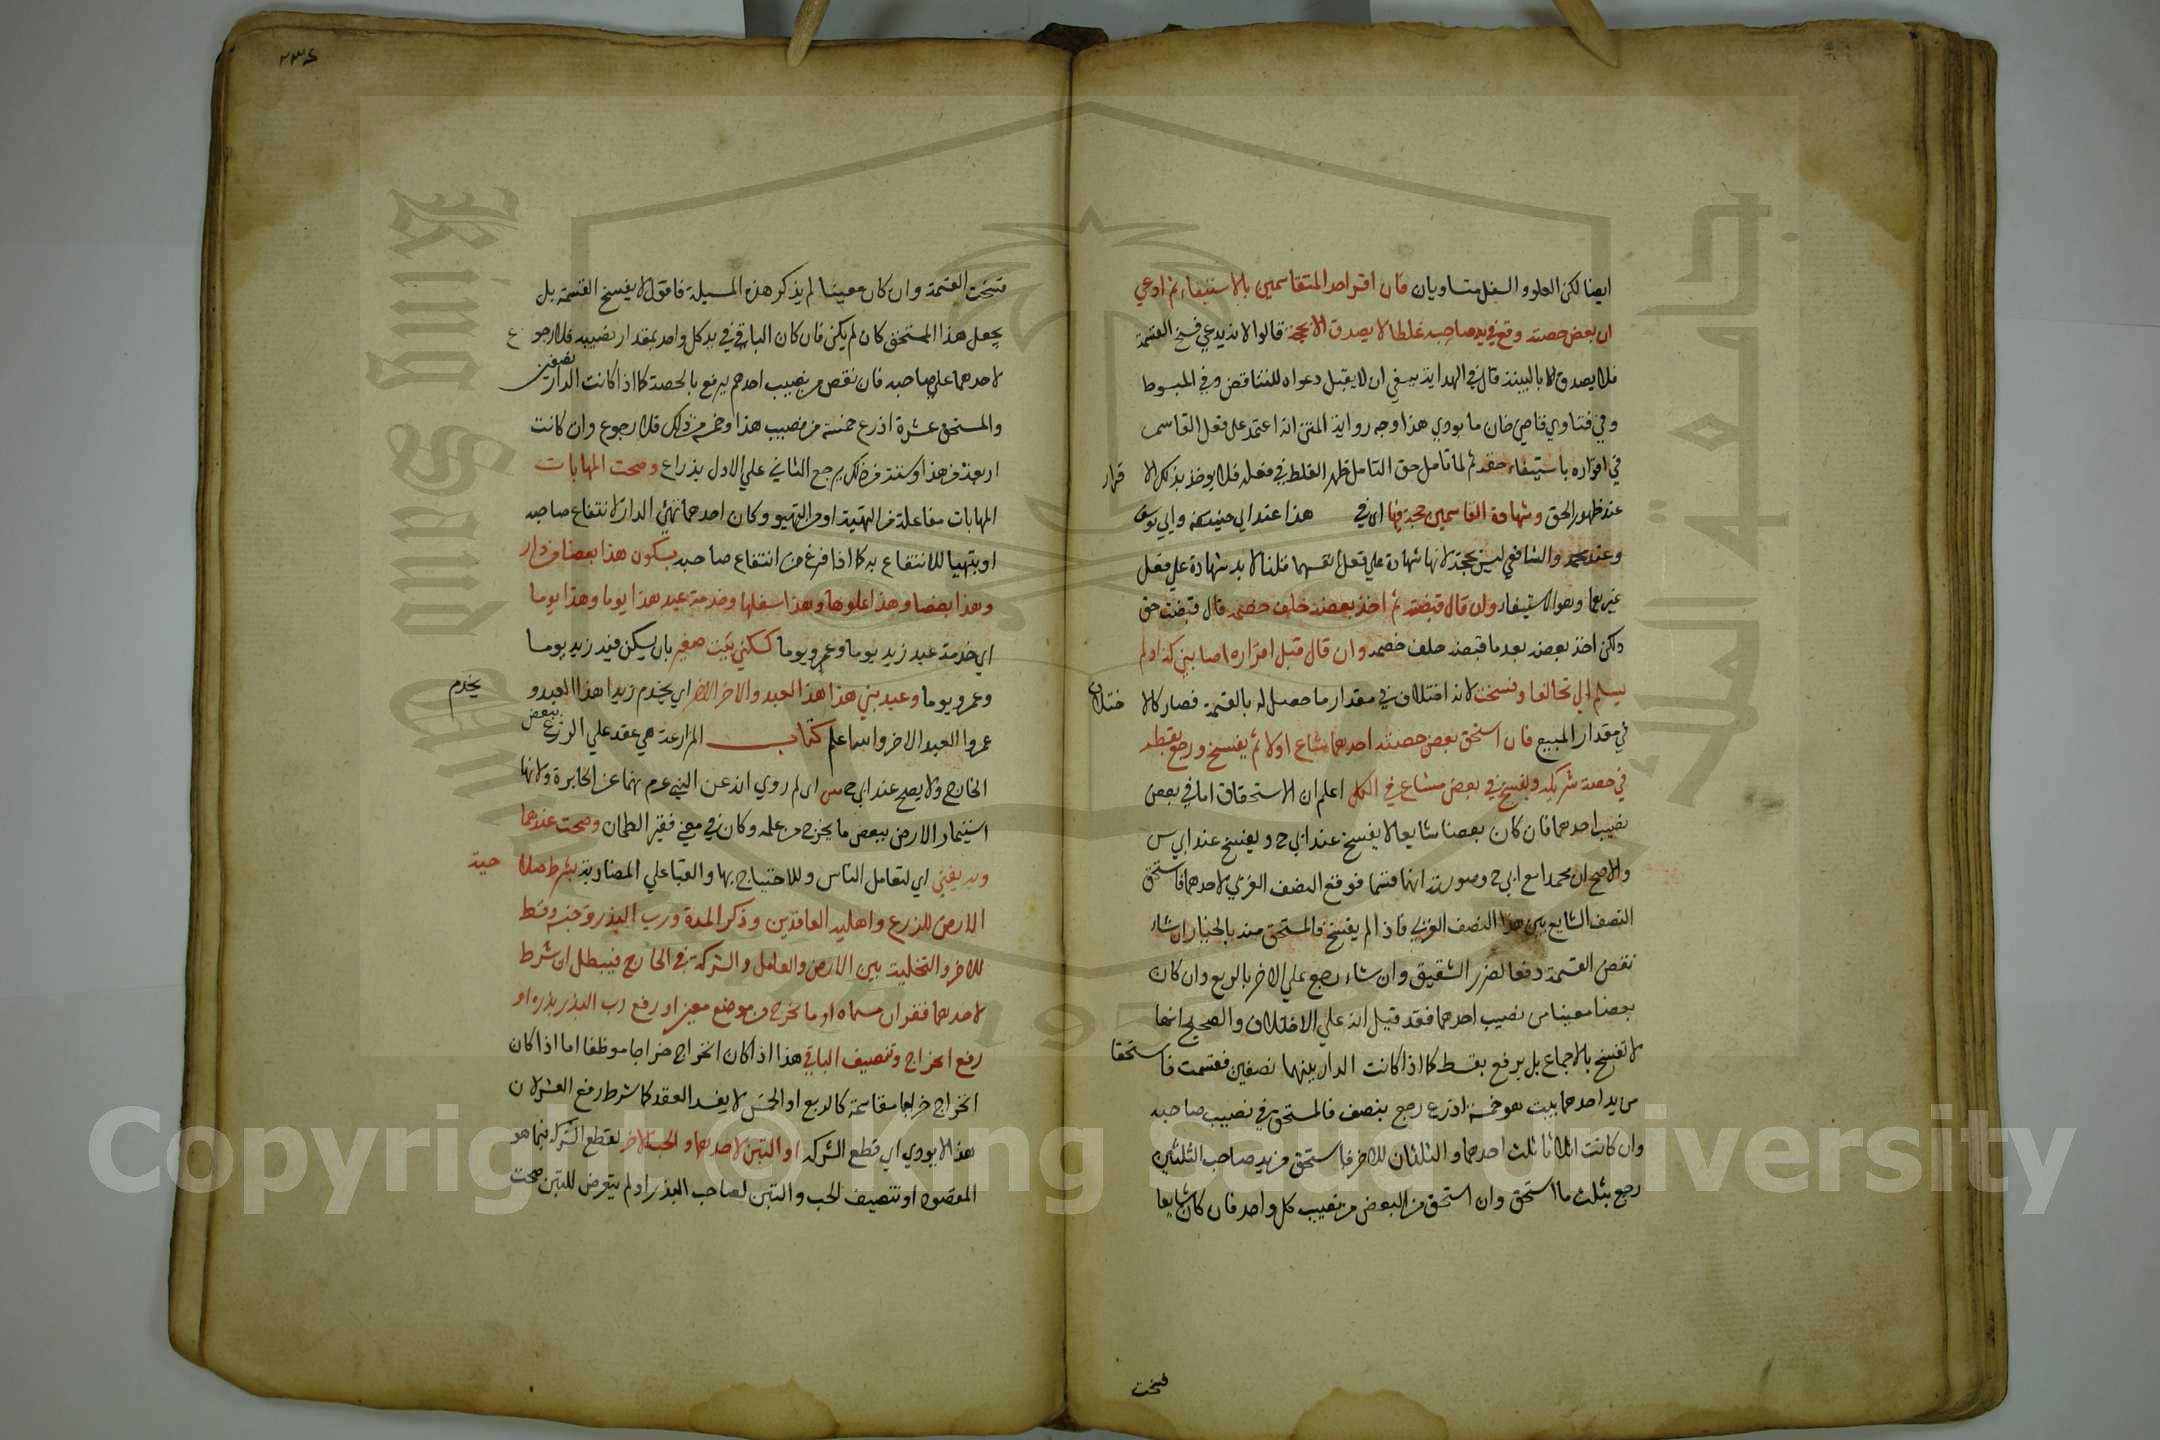 ايضا لكن العلو والسفل متساويان فان اقر احد المتقاسمين بالاستيفاء ثم ادعي
ان بعض حصته وقع في يد صاحبه غلطا لا يصدق الا بحجة قالوا لانه يدعي فسخ القسمة
فلا يصدق الا بالبينة قال في الهداية ينبغي ان لا يقبل دعواه للتناقض وفي المبسوط
وفي فتاوي قاضي خان ما يودي هذا وجه رواية المتن انه اعتمد على فعل القاسم
في اقراره باستيفاء حقه ثم لما تامل حق التامل ظهر الغلط في فعله فلا يوخذ بذلك الا قرار
عند ظهور الحق وشهادة القاسمين حجة فيها اي في هذا عند ابي حنيفة وابي يوسف
وعند محمد والشافعي ليس بحجة لانها شهادة علي فعل انفسهما قلنا لا بل شهادة علي فعل
غيرهما وهو الاستيفاء وان قال قبضته ثم اخذ بعضه حلف خصمه قال قبضت حق
ولكن اخذ بعضه بعد ما قبضه حلف خصمه وان قال قبل اقراره اصابني كذا ولم
يسلم الي تحالفا وفسخت لانه اختلاف في مقدار ما حصل له بالقسمة فصار كالا ختلاف
في مقدار المبيع فان استحق بعض حصته احدهما شاع اولا ثم يفسخ ورجع بقسطه
في حصة شريكه ويفسخ في بعض مشاع في الكل اعلم ان الاستحقاق اما في بعض
نصيب احدهما فان كان بعضا شايعا لا يفسخ عند ابي ح ويفسخ عند ابي س
والاصح ان محمدا مع ابي ح وصورته انهما قسما فوقع النصف الغربي لاحدهما فاستحق
النصف الشايع من هذا النصف الغربي فاذا لم يفسخ فالمستحق منه بالخيار ان شاء
نقض القسمة دفعا لضرر الشقيق وان شاء رجع علي الاخر بالربع وان كان
بعضا معينا من نصيب احدهما فقد قيل انه علي الاختلاف والصحيح انها
لا تفسخ بالاجماع بل يرجع بقسط كما اذا كانت الدار بينهما نصفين فقسمت فاستحقا
من يد احدهما بيت هو خمسة اذرع رجع بنصف فالمستحق في نصيب صاحبه
وان كانت اثلاثا ثلث احدهما والثلثان للاخر فاستحق من يد صاحب الثلثين
رجع بثلث ما استحق وان استحق من البعض من نصيب كل واحد فان كان شايعا
فسخت
٢٣٤
فسخت القسمة وان كان معينا لم يذكر هذه المسيلة فاقول لا يفسخ القسمة بل
يجعل هذا المستحق كان لم يكن فان كان الباقي في يد كل واحد بمقدار نصيبه فلا رجوع
لاحدهما علي صاحبه فان نقص من نصيب احدهم يرجع بالحصة كما اذا كانت الدار نصفين
والمستحق عشرة اذرع خمسة من نصيب هذا وخمسة من ذلك فلا رجوع وان كانت
اربعة من هذا وستة من ذلك يرجع الثاني علي الاول بذراع وصحت المهايات
المهايات مفاعلة من التهيئة او من التهيو وكان احدهما تهيئ الدار لانتفاع صاحبه
او يتهيا للانتفاع به كما اذا فرغ من انتفاع صاحبه بسكون هذا بعضا من دار
وهذا بعضا وهذا علوها وهذا سفلها وخدمة عبد هذا يوما وهذا يوما
اي خدمة عبد زيد يوما وعمرو يوما كسكني بيت صغير بان يسكن فيه زيد يوما
وعمرو يوما وعبدين هذا هذا العبد والاخر الاخر اي يخدم زيدا هذا العبد ويخدم
عمروا العبد الاخر والله اعلم كتاب المزارعة هي عقد علي الزرع ببعض
الخارج ولا يصح عند ابي ح س اي لم روي انه عن النبي عم م نهى عن المخابرة ولانها
استيجار الارض ببعض ما يخرج من عمله وكان في معني قفيز الطحان وصحت عندهما
وبه يفتي اي لتعامل الناس وللاحتياج بها والقياس علي المضاربة بشرط صلا حية
الارض للزرع واهلية العاقدين وذكر المدة ورب البذر وجنسه وقسط
للاخر والتخلية بين الارض والعامل والشركة في الخارج فيبطل ان شرط
لاحدهما قفزان مسماة او ما يخرج من موضع معين او رفع رب البذر بذره او
رفع الخراج وتنصيف الباقي هذا اذا كان الخراج خراجا موظفا اما اذا كان
الخراج خراجا مقاسمة كالربع او الخمس لا يفسد العقد كما شرط رفع العشر لان
هذا لا يودي اي قطع الشركة او التبن لاحدهما والحب للاخر لقطع الشركة فيما هو
المقصود او تنصيف الحب والتبن لصاحب البذر او لم يتعرض للتبن صحت
Copyright © King Saud University
King Saud University
جامعة الملك سعود
1957